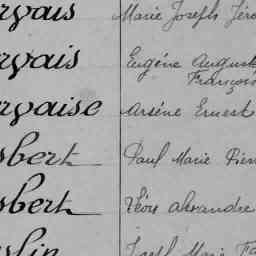 rvais Marie Joseph Jérô
rvais Eugéne August
François
rvaise Arséne Ernest
sbert Paul Marie Pierr
sbert Léon alexandre
slin Joseph Marie Fra